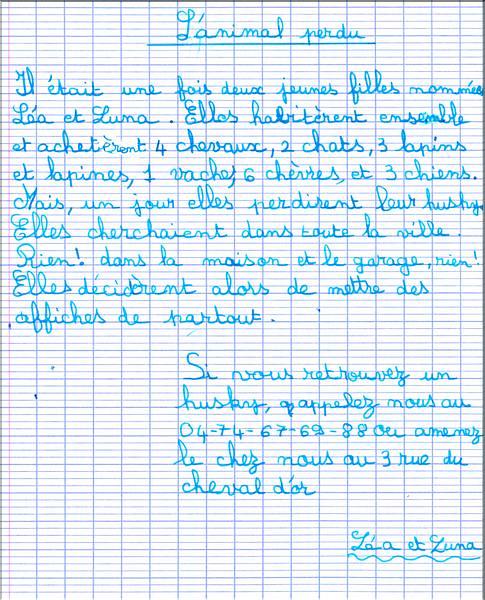 L'animal perdu
Il était une fois deux jeunes filles nommées
Léa et Luna. Elles habitèrent ensemble
et achetèrent 4 chevaux, 2 chats, 3 lapins
et lapines, 1 vache, 6 chèvres, et 3 chiens.
Mais, un jour elles perdirent leur husky.
Elles cherchaient dans toute la ville.
Rien! dans la maison et le garage, rien!
Elles décidèrent alors de mettre des
affiches de partout.
Si vous retrouvez un
husky, appelez nous au
04-74-67-69-88 ou amenez
le chez nous au 3 rue du
cheval d'or
Léa et Luna